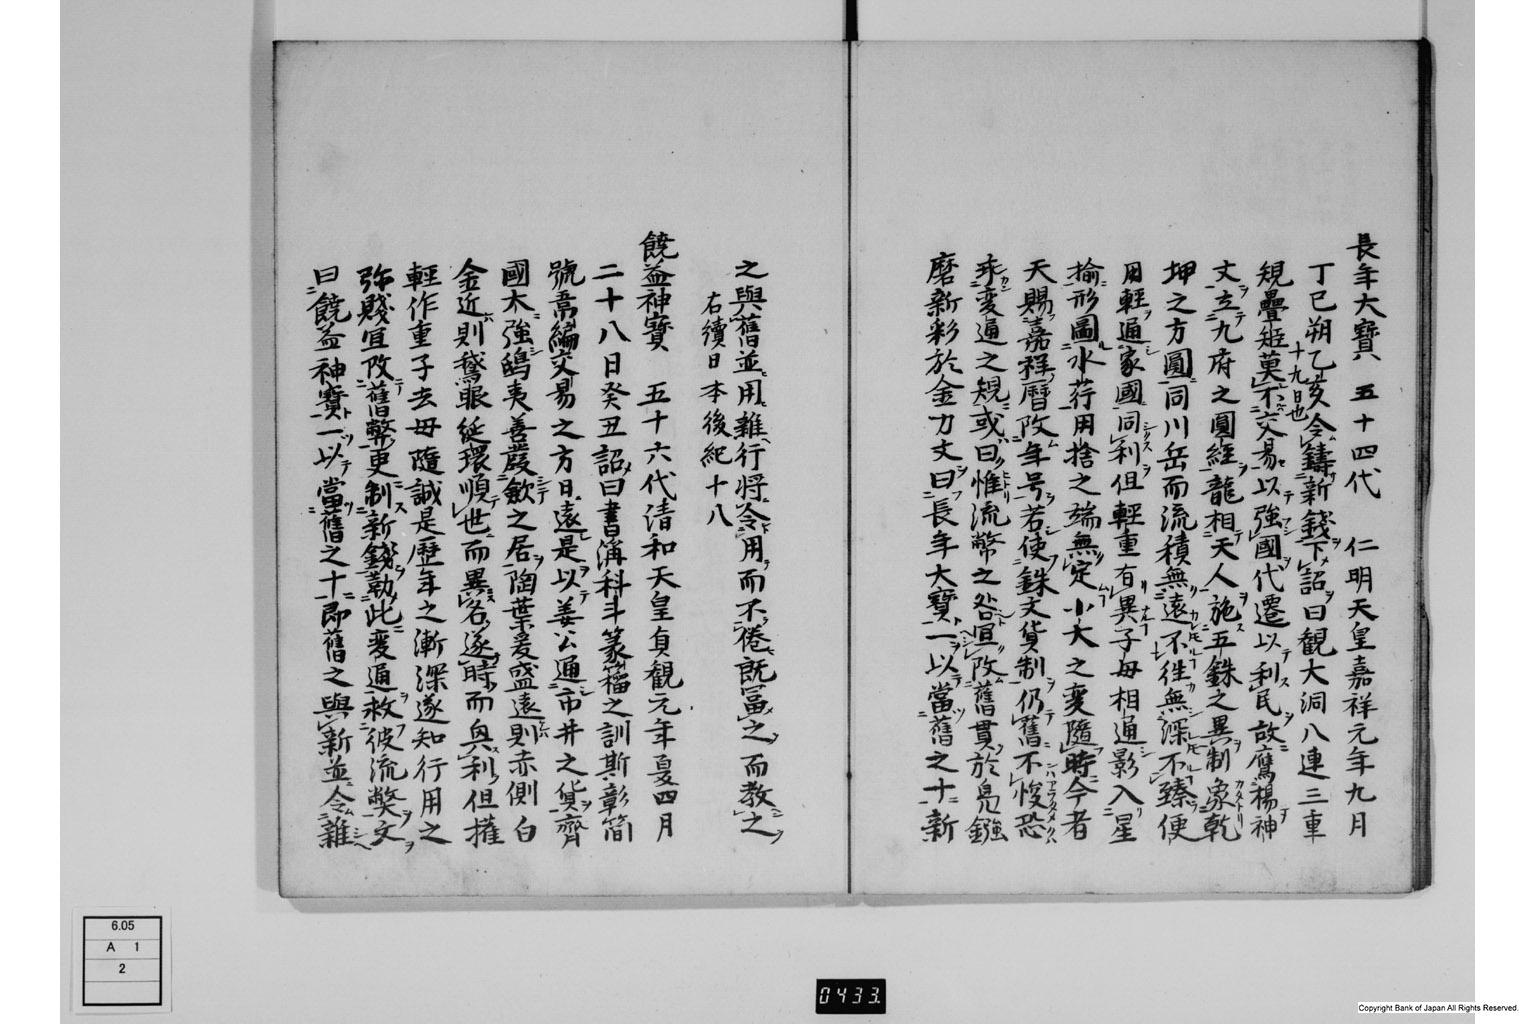 長年大寶 五十四代 仁明天皇嘉祥元年九月
丁巳朔乙亥十九日也令鑄新錢下詔曰観大洞八連三車
規疊姫菓不交易以強國代遷以利民故鷹楊神
文立九府之圓経龍相天人施五銖之異制象乾
坤之方圓同川岳而流積無遠不徃無深不臻使
用輕通家國同利但輕重有異子母相通影入星
揄形圖水荇用捨之端無定小大之変隨時今者
天賜嘉祥暦改年号若使銖文貨制仍舊不悛恐
乖変通之規或曰惟流幣之咎冝改舊貫於鳧鏹
磨新彩於金刀文曰長年大寶一以當舊之十新
之與舊並用雜行将令用而不倦既冨之而教之
右續日本後紀十八
饒益神寶 五十六代清和天皇貞観元年夏四月
二十八日癸丑詔曰書溝科斗篆籀之訓斯彰簡
號喬編交易之方日遠是以姜公通市井之貨齊
國大強鴟夷善葭歛之居陶葉爰盛遠則赤側白
金近則鵞眼綖環順世而異名逐時而與利但摧
輕作重子去母隨誠是歴年之漸深遂知行用之
弥賤冝改舊幣更制新錢勒此変通救彼流弊文
曰饒益神寶一以當舊之十即舊之與新並令雜
6.05
A 1
2
0433
Copyright Bank of Japan All Rights Reserved.